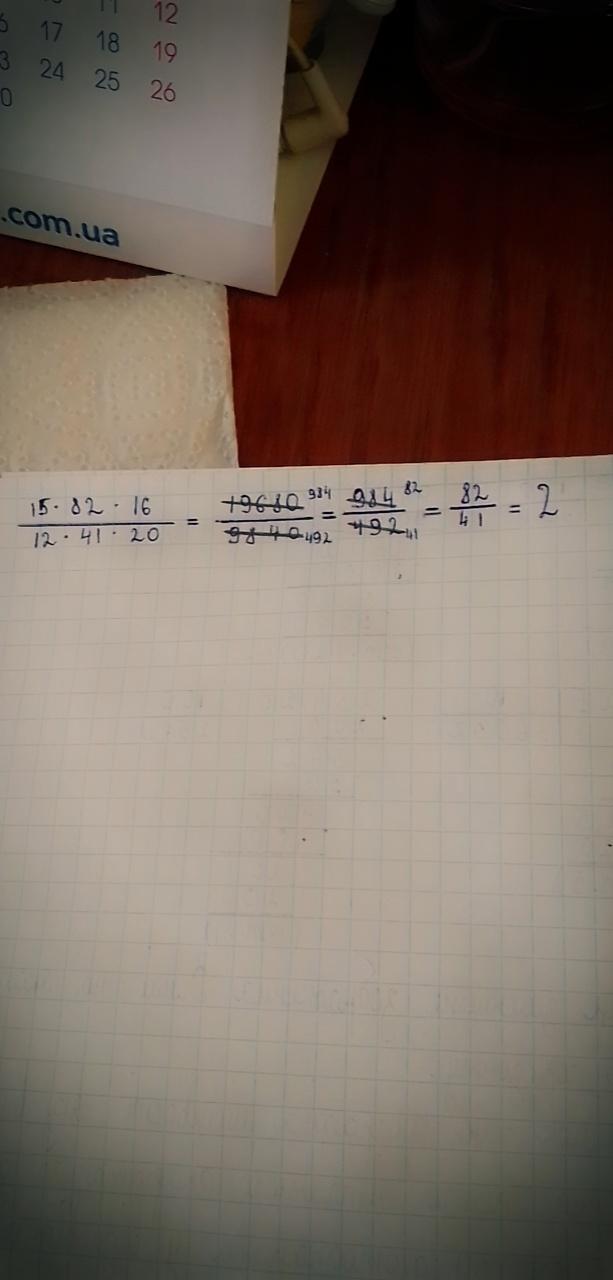 11 12
17 18 19
24 25 26
.com.ua
15 · 82 · 16 / 12 · 41 · 20 = 19680 984 / 9840 492 = 984 82 / 492 41 = 82 / 41 = 2